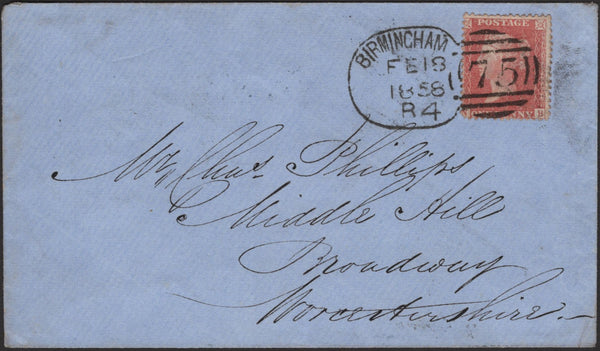 BIRMINGHAM
FE 18
1858
R4
POSTAGE
75
Mr, Chas. Phillips
Middle Hill
Broadway
Worcestershire.